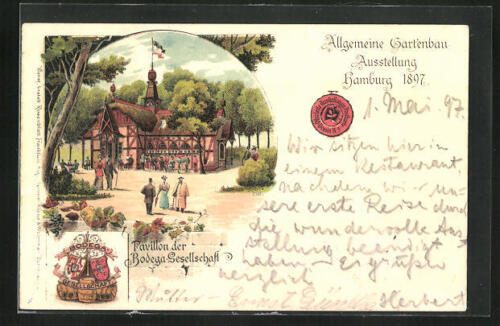 Allgemeine Gartenbau
Ausstellung
Hamburg 1897.
1. Mai 97.
Wir sitzen hier in
einem Restaurant,
nachdem wir un-
sere erste Reise durch
die wundervolle Aus-
stellung beendigt
haben. Es grüßen
herzlich
Mutter Ernst Herbert
Pavillon der
Bodega-Gesellschaft
BODEGA
GESELLSCHAFT